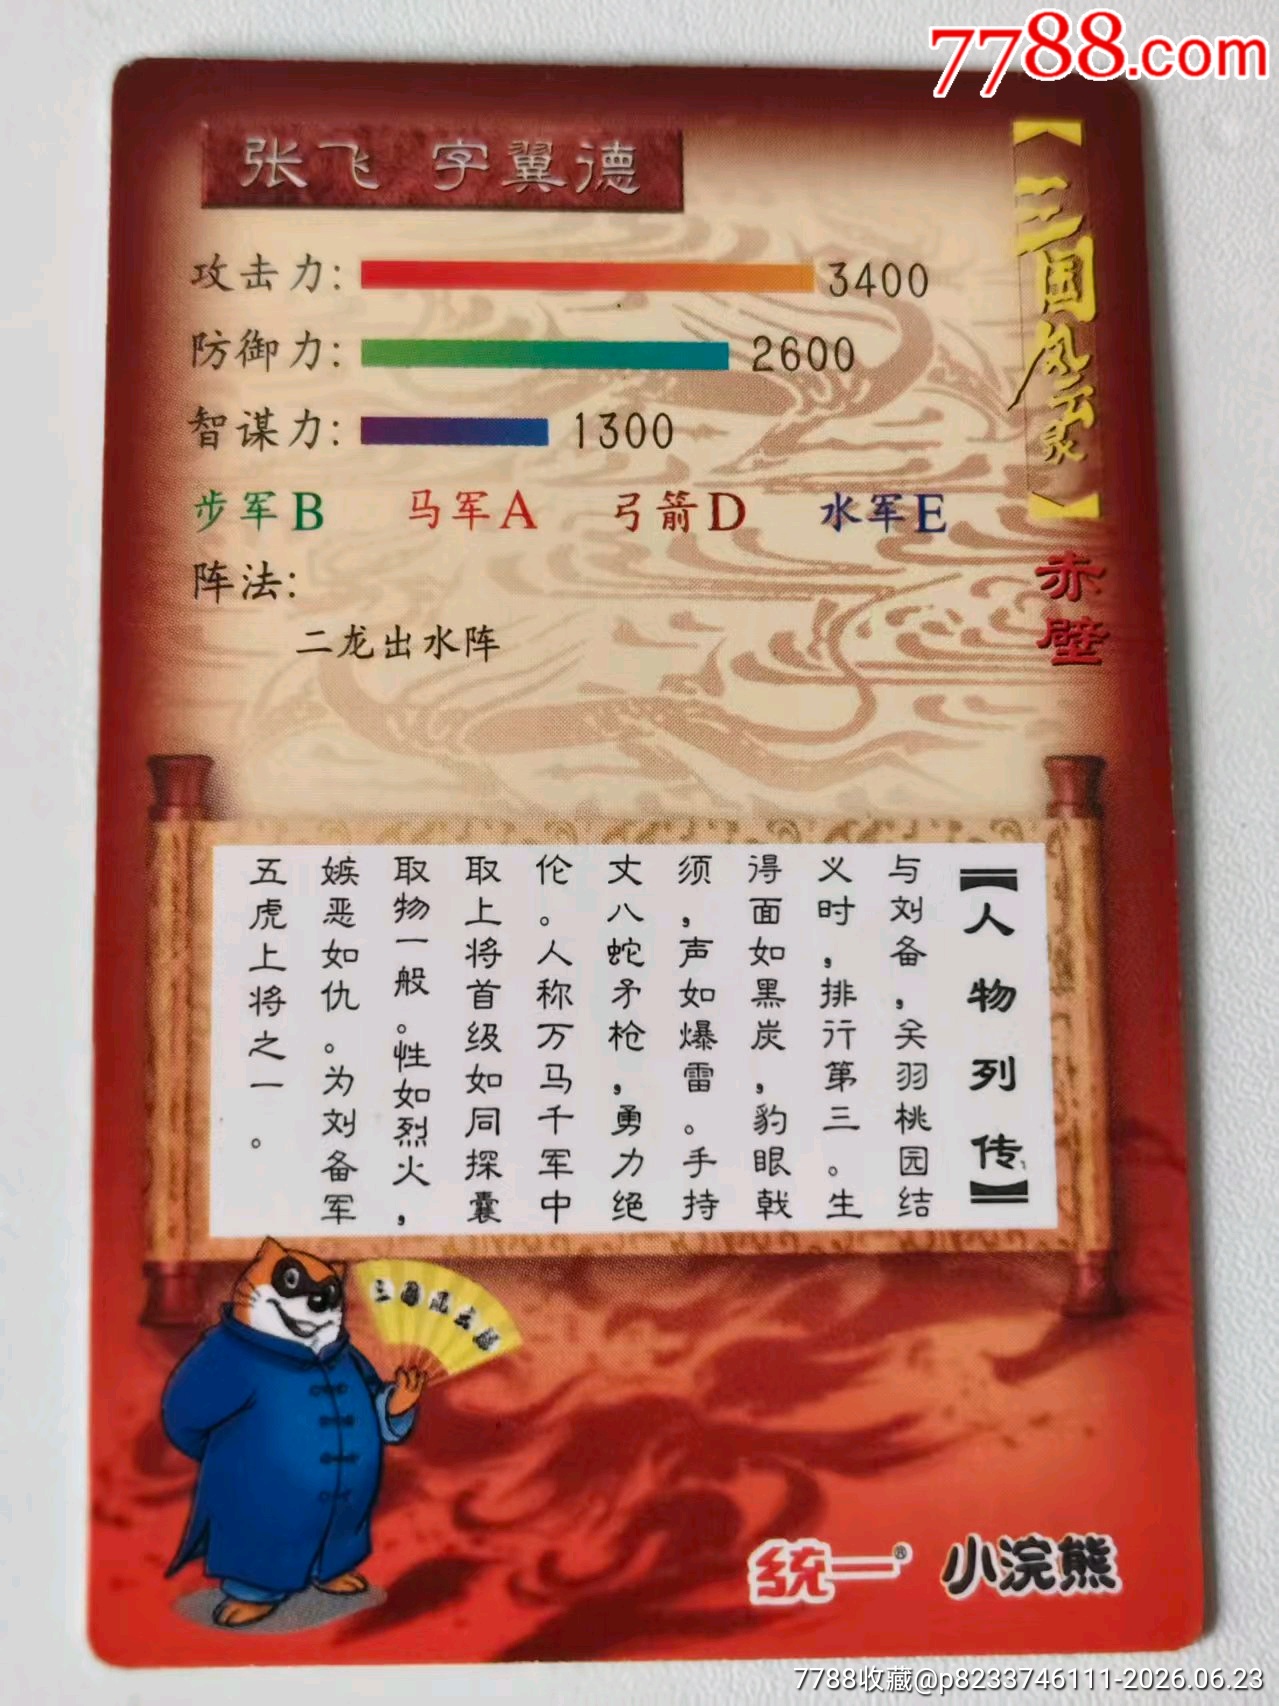 7788.com
张飞 字翼德
攻击力: 3400
防御力: 2600
智谋力: 1300
步军B 马军A 弓箭D 水军E
阵法:
二龙出水阵
【三国风云录】
赤壁
【人物列传】
与刘备,关羽桃园结
义时,排行第三。生
得面如黑炭,豹眼戟
须,声如爆雷。手持
丈八蛇矛枪,勇力绝
伦。人称万马千军中
取上将首级如同探囊
取物一般。性如烈火,
嫉恶如仇。为刘备军
五虎上将之一。
三国风云录
统一® 小浣熊
7788收藏@p8233746111-2026.06.23